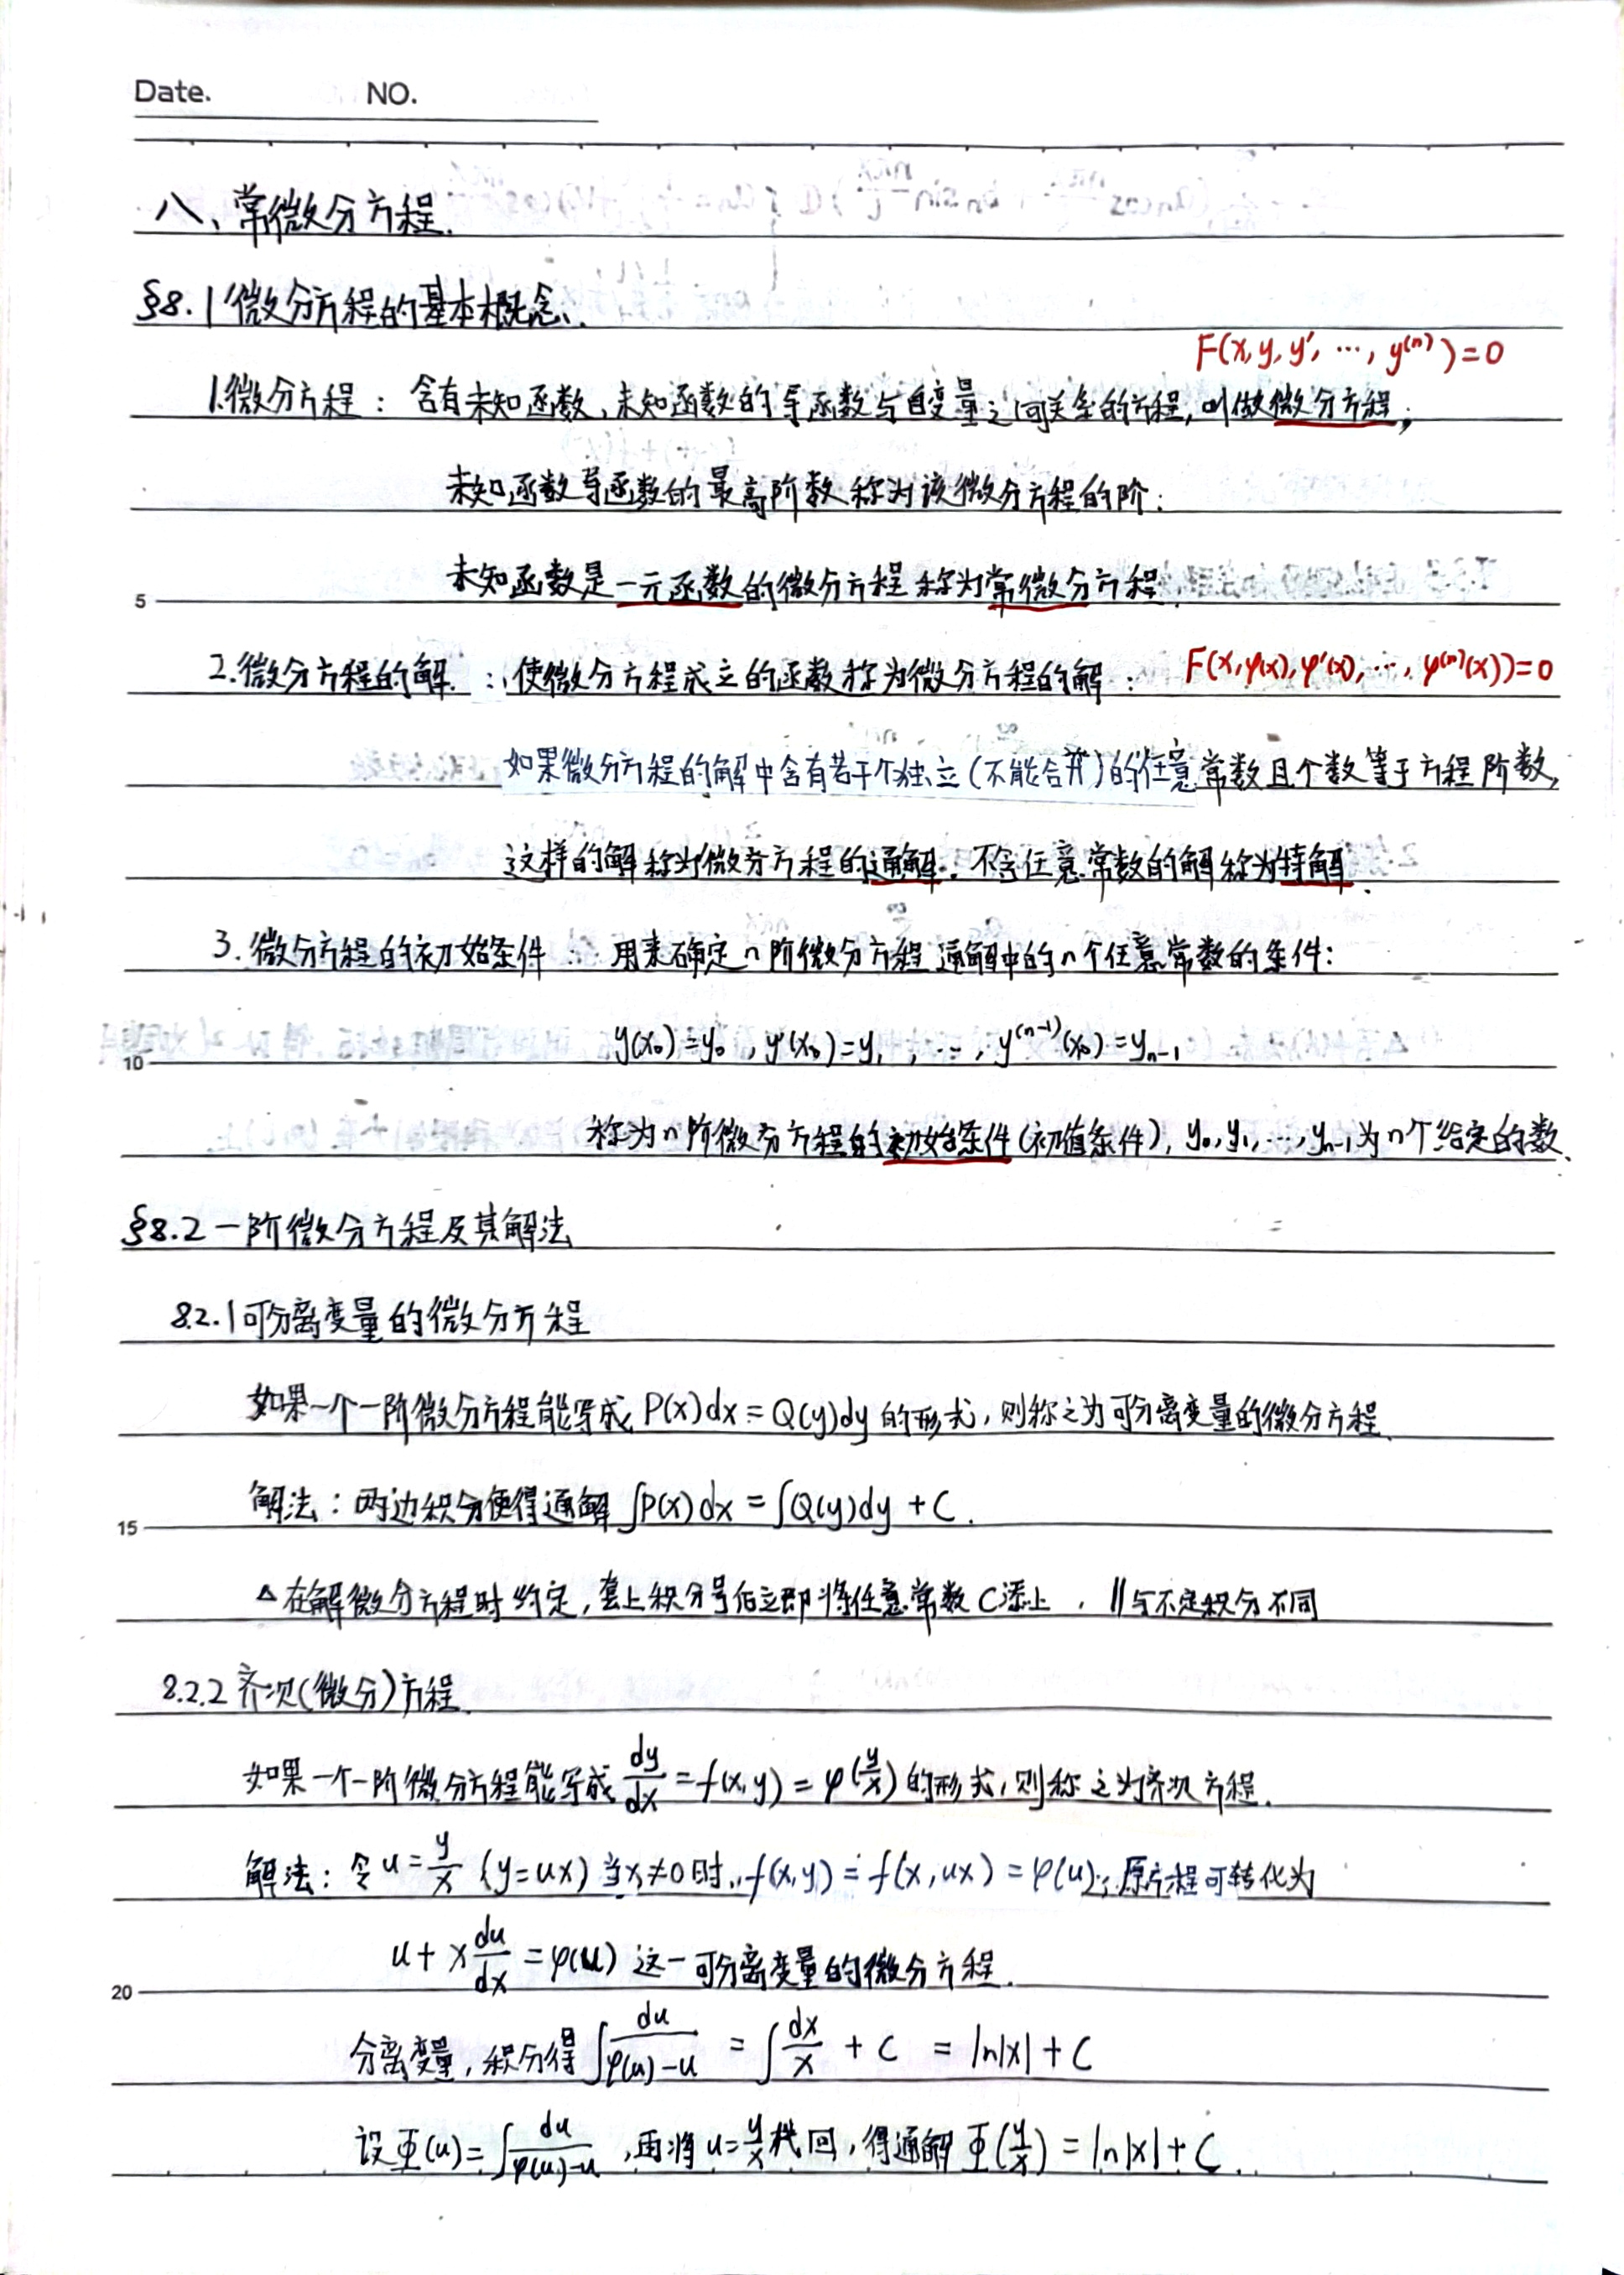 Date. NO.
八、常微分方程.
§8.1 微分方程的基本概念.
F(x,y,y′,…,y⁽ⁿ⁾)=0
1.微分方程：含有未知函数,未知函数的导函数与自变量之间关系的方程,叫做微分方程；
未知函数导函数的最高阶数称为该微分方程的阶；
5 未知函数是一元函数的微分方程称为常微分方程.
2.微分方程的解：使微分方程成立的函数称为微分方程的解； F(x,φ(x),φ′(x),…,φ⁽ⁿ⁾(x))=0
如果微分方程的解中含有若干个独立(不能合并)的任意常数且个数等于方程阶数,
这样的解称为微分方程的通解. 不含任意常数的解称为特解.
3.微分方程的初始条件：用来确定n阶微分方程通解中的n个任意常数的条件：
10 y(x₀)=y₀,y′(x₀)=y₁,…,y⁽ⁿ⁻¹⁾(x₀)=yₙ₋₁
称为n阶微分方程的初始条件(初值条件),y₀,y₁,…,yₙ₋₁为n个给定的数.
§8.2一阶微分方程及其解法
8.2.1可分离变量的微分方程
如果一个一阶微分方程能写成P(x)dx=Q(y)dy的形式,则称之为可分离变量的微分方程.
15 解法：两边积分便得通解∫P(x)dx=∫Q(y)dy+C.
△在解微分方程时约定,套上积分号后立即将任意常数C添上. ∥与不定积分不同
8.2.2齐次(微分)方程.
如果一个一阶微分方程能写成dy/dx=f(x,y)=φ(y/x)的形式,则称之为齐次方程.
解法：令u=y/x(y=ux)当x≠0时,f(x,y)=f(x,ux)=φ(u),原方程可转化为
20 u+x du/dx=φ(u)这一可分离变量的微分方程.
分离变量,积分得∫du/(φ(u)-u)=∫dx/x+C=ln|x|+C
设Φ(u)=∫du/(φ(u)-u),再将u=y/x代回,得通解Φ(y/x)=ln|x|+C.